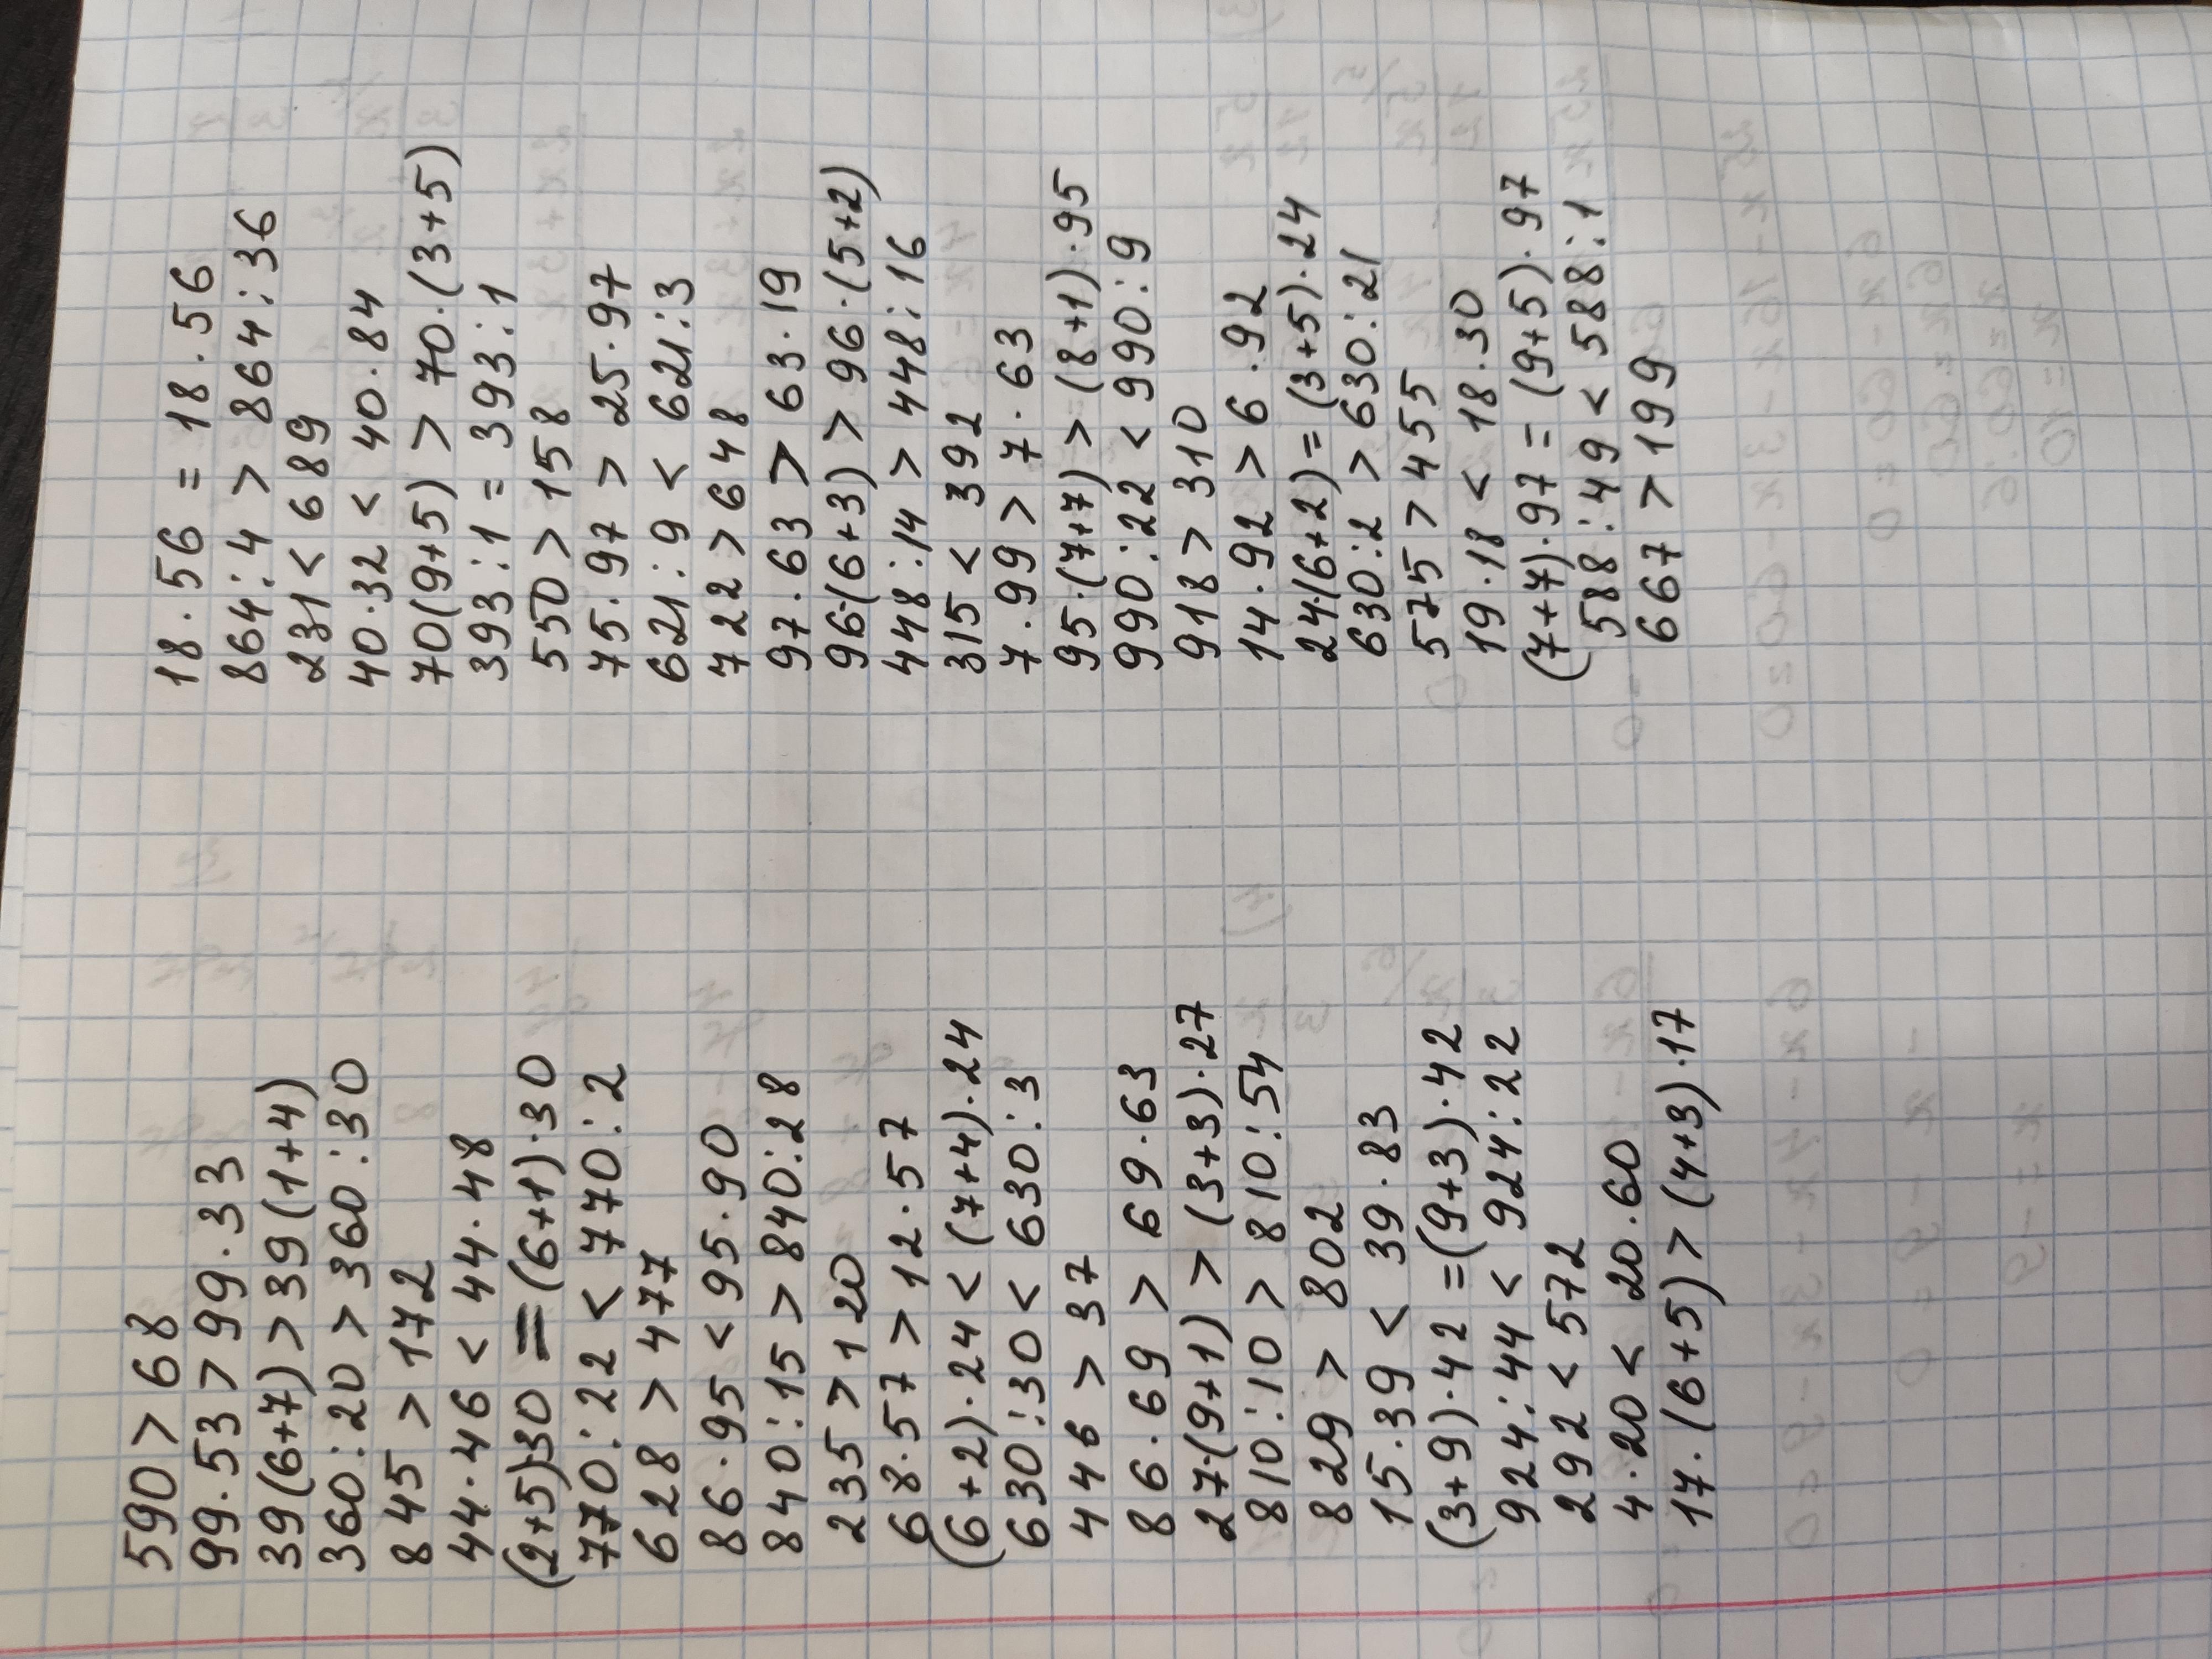 590 > 68
99 · 53 > 99 · 33
39(6+7) > 39(1+4)
360 : 20 > 360 : 30
845 > 172
44 · 46 < 44 · 48
(2+5)·30 = (6+1)·30
770 : 22 < 770 : 2
628 > 477
86 · 95 < 95 · 90
840 : 15 > 840 : 28
235 > 120
68 · 57 > 12 · 57
(6+2) · 24 < (7+4) · 24
630 : 30 < 630 : 3
446 > 37
86 · 69 > 69 · 63
27·(9+1) > (3+3) · 27
810 : 10 > 810 : 54
829 > 802
15 · 39 < 39 · 83
(3+9) · 42 = (9+3) · 42
924 : 44 < 924 : 22
292 < 572
4 · 20 < 20 · 60
17 · (6+5) > (4+3) · 17
18 · 56 = 18 · 56
864 : 4 > 864 : 36
231 < 689
40 · 32 < 40 · 84
70(9+5) > 70 · (3+5)
393 : 1 = 393 : 1
550 > 158
75 · 97 > 25 · 97
621 : 9 < 621 : 3
722 > 648
97 · 63 > 63 · 19
96·(6+3) > 96 · (5+2)
448 : 14 > 448 : 16
315 < 392
7 · 99 > 7 · 63
95 · (7+7) > (8+1) · 95
990 : 22 < 990 : 9
918 > 310
14 · 92 > 6 · 92
24·(6+2) = (3+5) · 24
630 : 2 > 630 : 21
525 > 455
19 · 18 < 18 · 30
(7+7) · 97 = (9+5) · 97
588 : 49 < 588 : 1
667 > 199